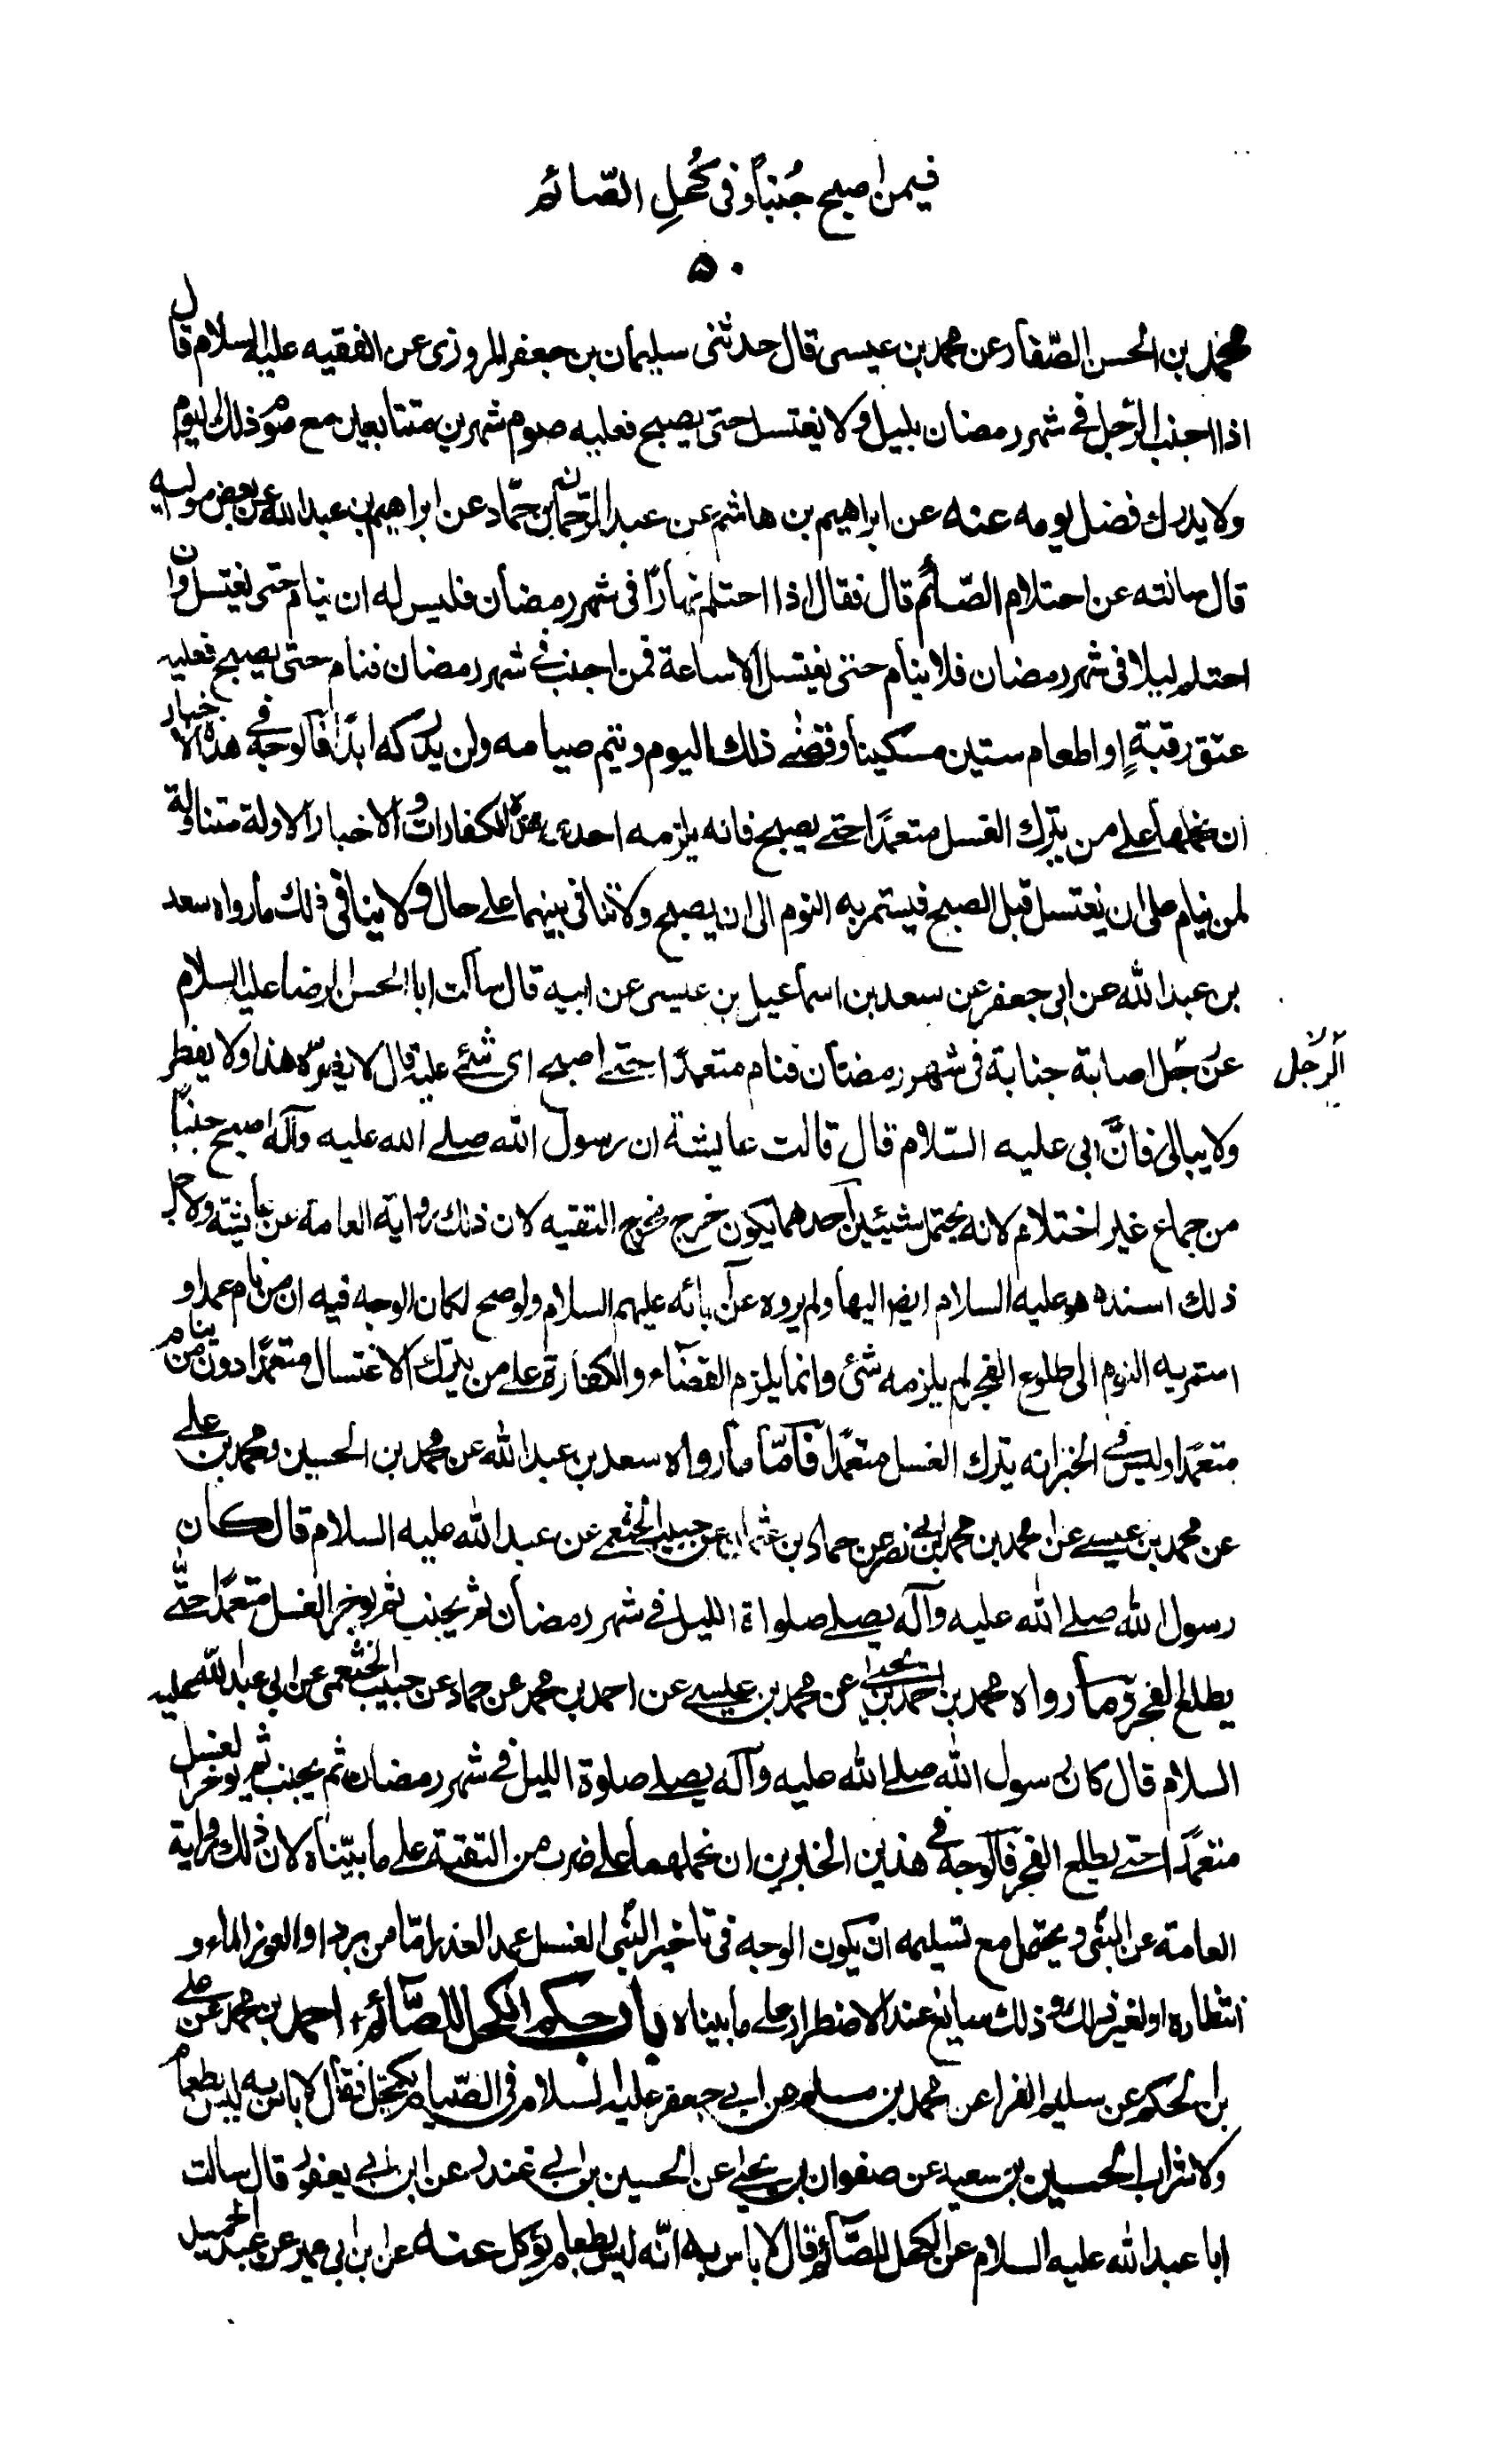 فيمن اصبح جُنباً وفى كُحلِ الصّائم
٥٠
محمد بن الحسن الصّفار عن محمد بن عيسى قال حدثنى سليمان بن جعفر المروزى عن الفقيه عليه السلام قال
اذا اجنب الرّجل فى شهر رمضان بليل ولا يغتسل حتى يصبح فعليه صوم شهرين متتابعين مع صوم ذلك اليوم
ولا يدرك فضل يومه عنه عن ابراهيم بن هاشم عن عبد الرّحمان بن حمّاد عن ابراهيم بن عبد الله عن بعض مواليه
قال سالته عن احتلام الصّائم قال فقال اذا احتلم نهارًا فى شهر رمضان فليس له ان ينام حتى يغتسل وان
احتلم ليلا فى شهر رمضان فلا ينام حتى يغتسل الا ساعة فمن اجنب فى شهر رمضان فنام حتى يصبح فعليه
عتق رقبةٍ او اطعام ستين مسكينا وقضى ذلك اليوم ويتم صيامه ولن يدركه ابدًا فالوجه فى هذه الاخبار
ان نحملها على من يترك الغسل متعمدًا حتے يصبح فانه يلزمه احدى هذه الكفارات والاخبار الاولة متناولة
لمن ينام على ان يغتسل قبل الصبح فيستمر به النوم الى ان يصبح ولا تنافى بينهما على حال ولا ينافى ذلك ما رواه سعد
بن عبد الله عن ابى جعفر عن سعد بن اسماعيل بن عيسى عن ابيه قال سالت ابا الحسن الرضا عليه السلام
عن رجل اصابة جنابة فى شهر رمضان فنام متعمدًا حتے اصبح اى شئے عليه قال لا يضرّه هذا ولا يفطر
الرجل
ولا يبالى فانّ ابى عليه السّلام قال قالت عايشة ان رسول الله صلے الله عليه وآله اصبح جنبًا
من جماع غير احتلام لانه يحتمل شيئين احدهما يكون خرج مخرج التقيه لان ذلك رواية العامة عن عايشة ولاجل
ذلك اسنده هو عليه السلام ايضا اليها ولم يروه عن آبائه عليهم السلام ولو صح لكان الوجه فيه ان من نام عمدا و
استمر به النوم الى طلوع الفجر لم يلزمه شئ وانما يلزم القضاء والكفارة على من يترك الاغتسال متعمدًا دون من ينام
متعمدا وليس فى الخبر انه يترك الغسل متعمدًا فامّا ما رواه سعد بن عبد الله عن محمد بن الحسين ومحمد بن على
عن محمد بن عيسے عن احمد بن محمد بن ابى نصر عن حماد بن عثمان عن حبيب الخثعمے عن عبد الله عليه السلام قال كان
رسول الله صلے الله عليه وآله يصلے صلواة الليل فى شهر رمضان ثم يجنب ثم يوخر الغسل متعمدًا حتّے
يطلع الفجر وما رواه محمد بن احمد بن يحيى عن محمد بن عيسے عن احمد بن محمد عن حماد عن حبيب الخثعمى عن ابى عبد الله عليه
السلام قال كان رسول الله صلے الله عليه وآله يصلے صلوة الليل فى شهر رمضان ثم يجنب ثم يوخر الغسل
متعمدًا حتے يطلع الفجر فالوجه فى هذين الخبرين ان نحملهما على ضرب من التقية على ما بيّناه لان ذلك رواية
العامة عن النّبى ويحتمل مع تسليمه ان يكون الوجه فى تاخير النّبى الغسل عمدا لعذر امّا من برد او العوز الماء و
انتظاره او لغير ذلك وذلك سايغ عند الاضطرار على ما بيناه باب حكم الكحل للصّائم احمد بن محمد عن على
بن الحكم عن سليم الفرا عن محمد بن مسلم عن ابى جعفر عليه السلام فى الصّيام يكتحل فقال لا باس به ليس بطعام
ولا شراب الحسين بن سعيد عن صفوان بن يحيے عن الحسين بن ابے غندر عن ابن ابے يعفور قال سالت
ابا عبد الله عليه السلام عن الكحل للصّائم قال لا باس به انّه ليس بطعام يؤكل عنه عن ابن ابى عمير عن عبد الحميد